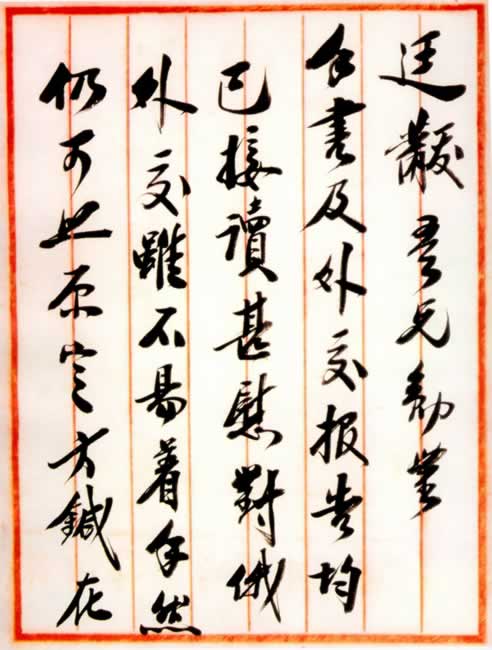 廷黻吾兄勛鑒
手書及外交报告均
已接讀甚慰對俄
外交雖不易着手然
仍可照原定方鍼在